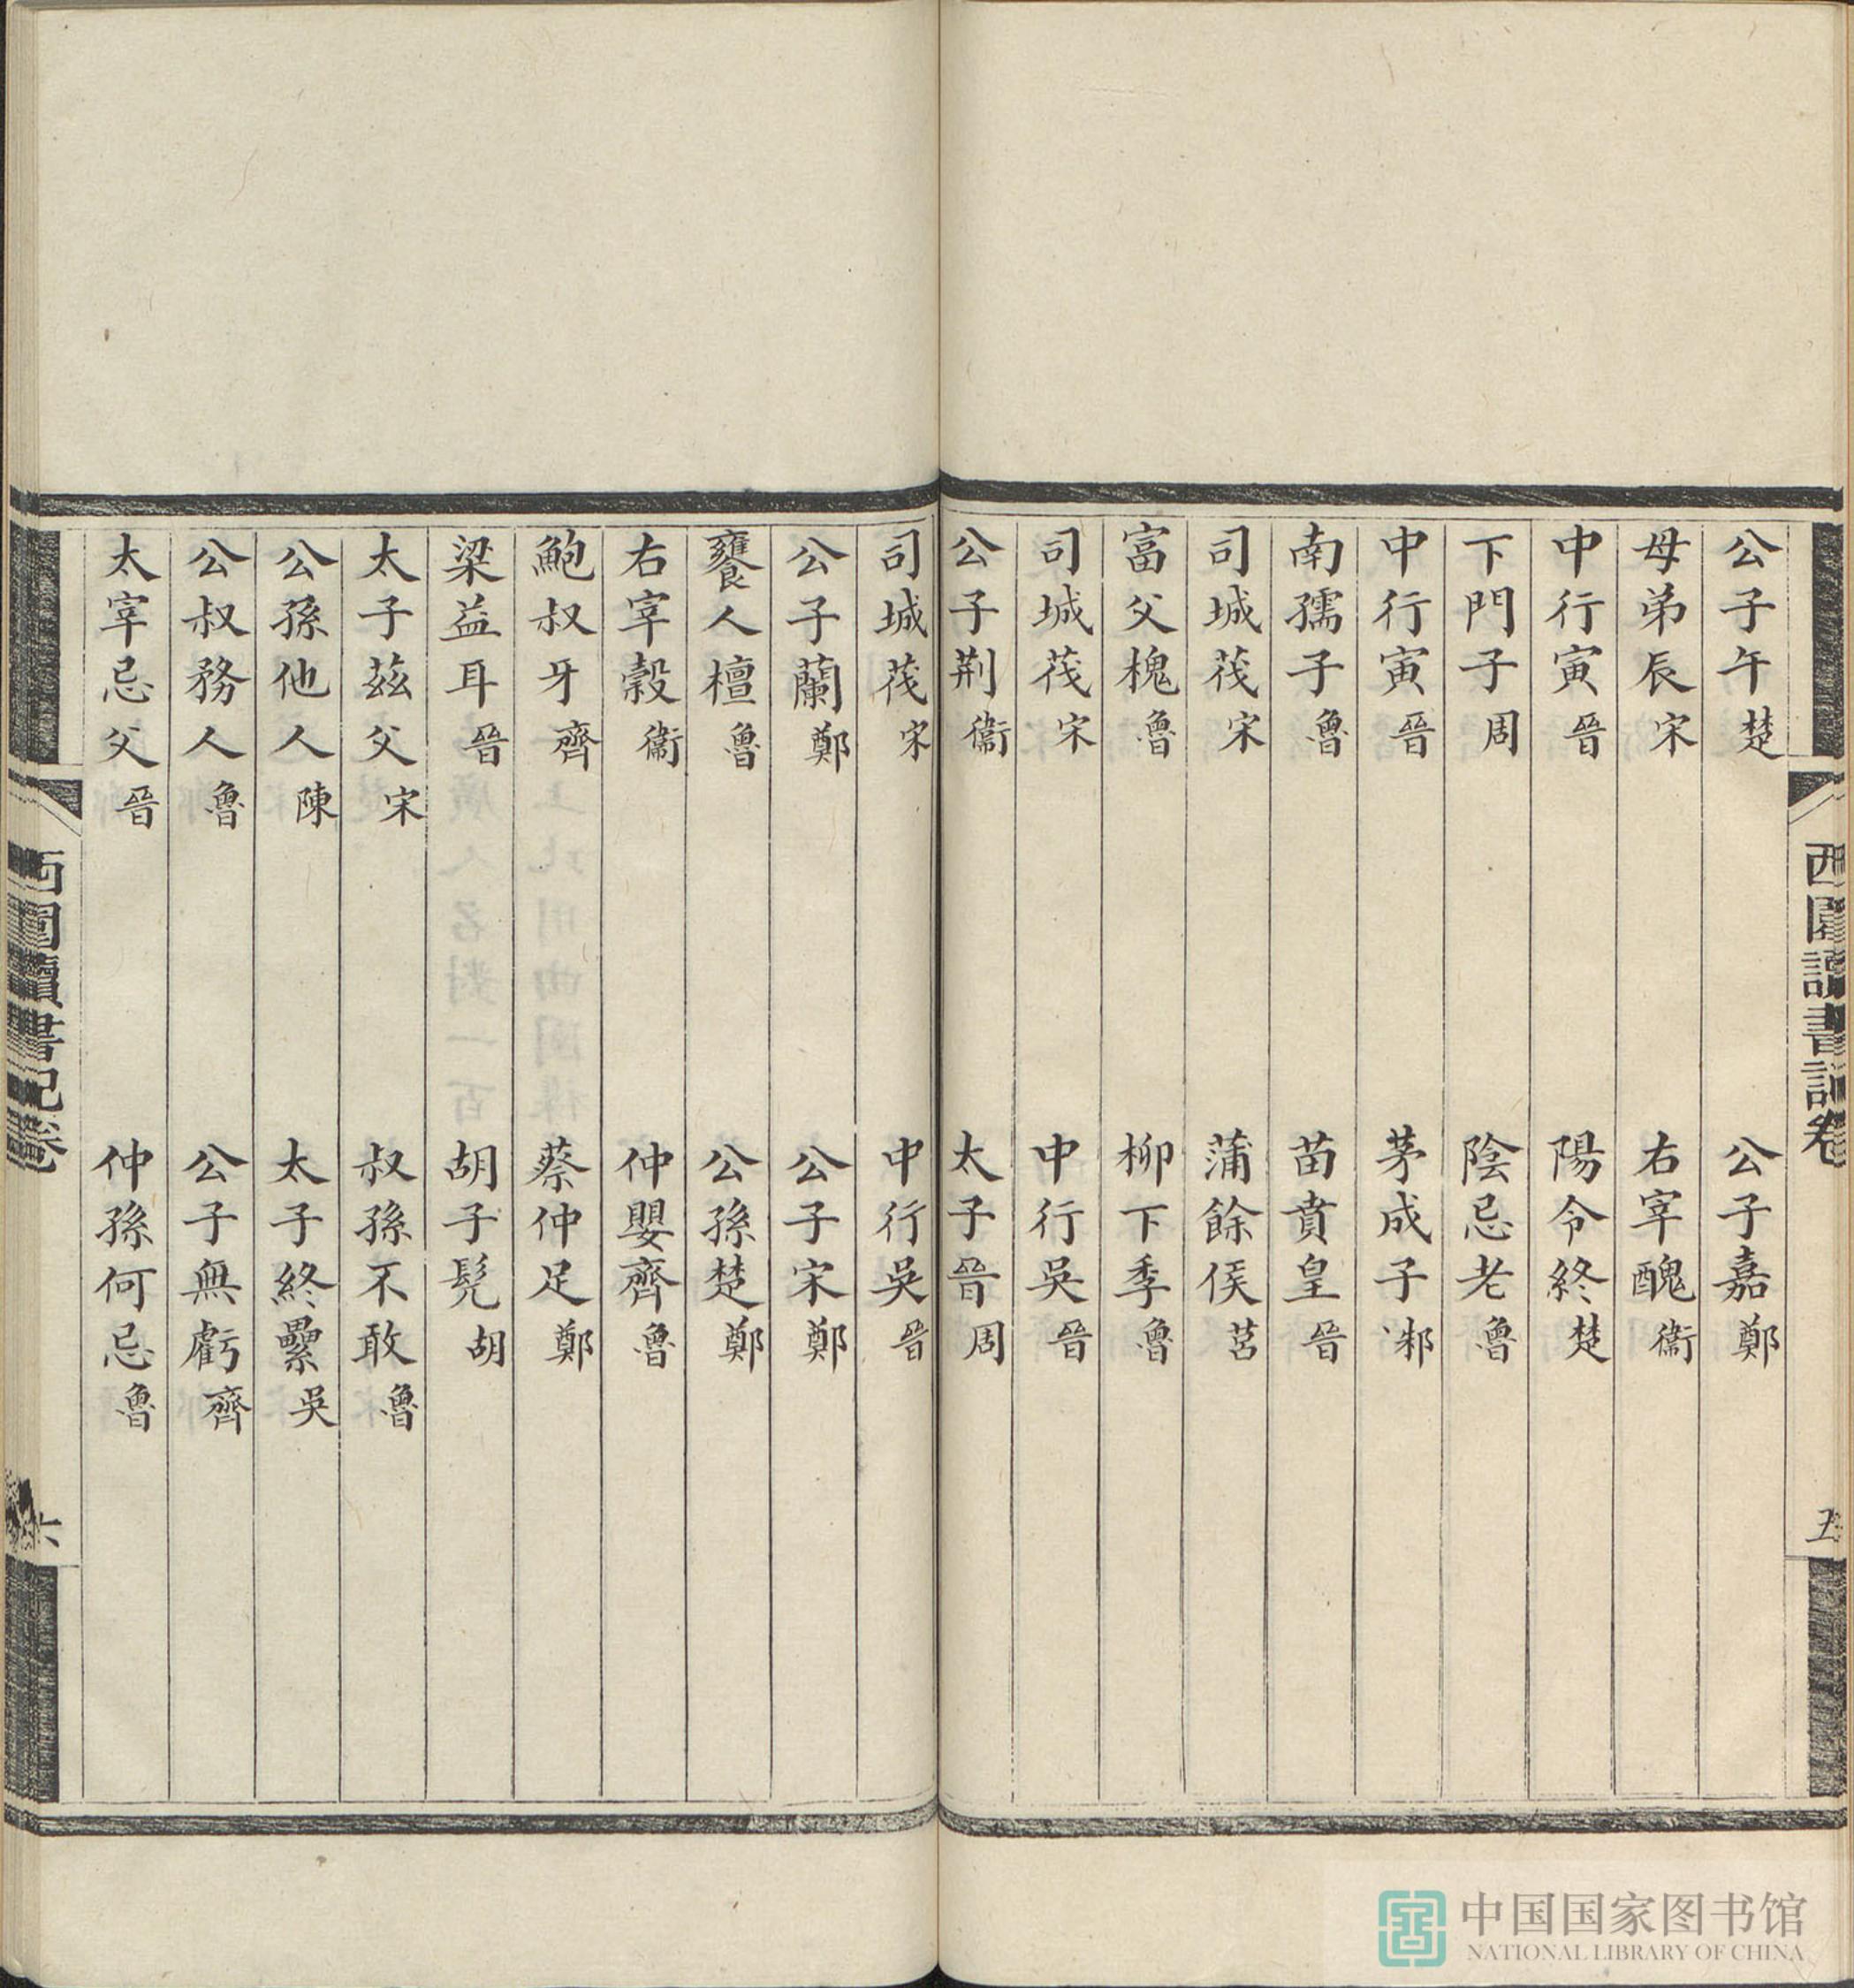 公子午楚　公子嘉鄭
母弟辰宋　右宰醜衞
中行寅晉　陽令終楚
下門子周　陰忌老魯
中行寅晉　茅成子邾
南孺子魯　苗賁皇晉
司城茷宋　蒲餘侯莒
富父槐魯　柳下季魯
司城茷宋　中行吳晉
公子荆衞　太子晉周
西圃讀書記卷
五
司城茷宋　中行吳晉
公子蘭鄭　公子宋鄭
饔人檀魯　公孫楚鄭
右宰穀衞　仲嬰齊魯
鮑叔牙齊　蔡仲足鄭
梁益耳晉　胡子髡胡
太子茲父宋　叔孫不敢魯
公孫他人陳　太子終纍吳
公叔務人魯　公子無虧齊
太宰忌父晉　仲孫何忌魯
西圃讀書記卷
六
中国国家图书馆
NATIONAL LIBRARY OF CHINA